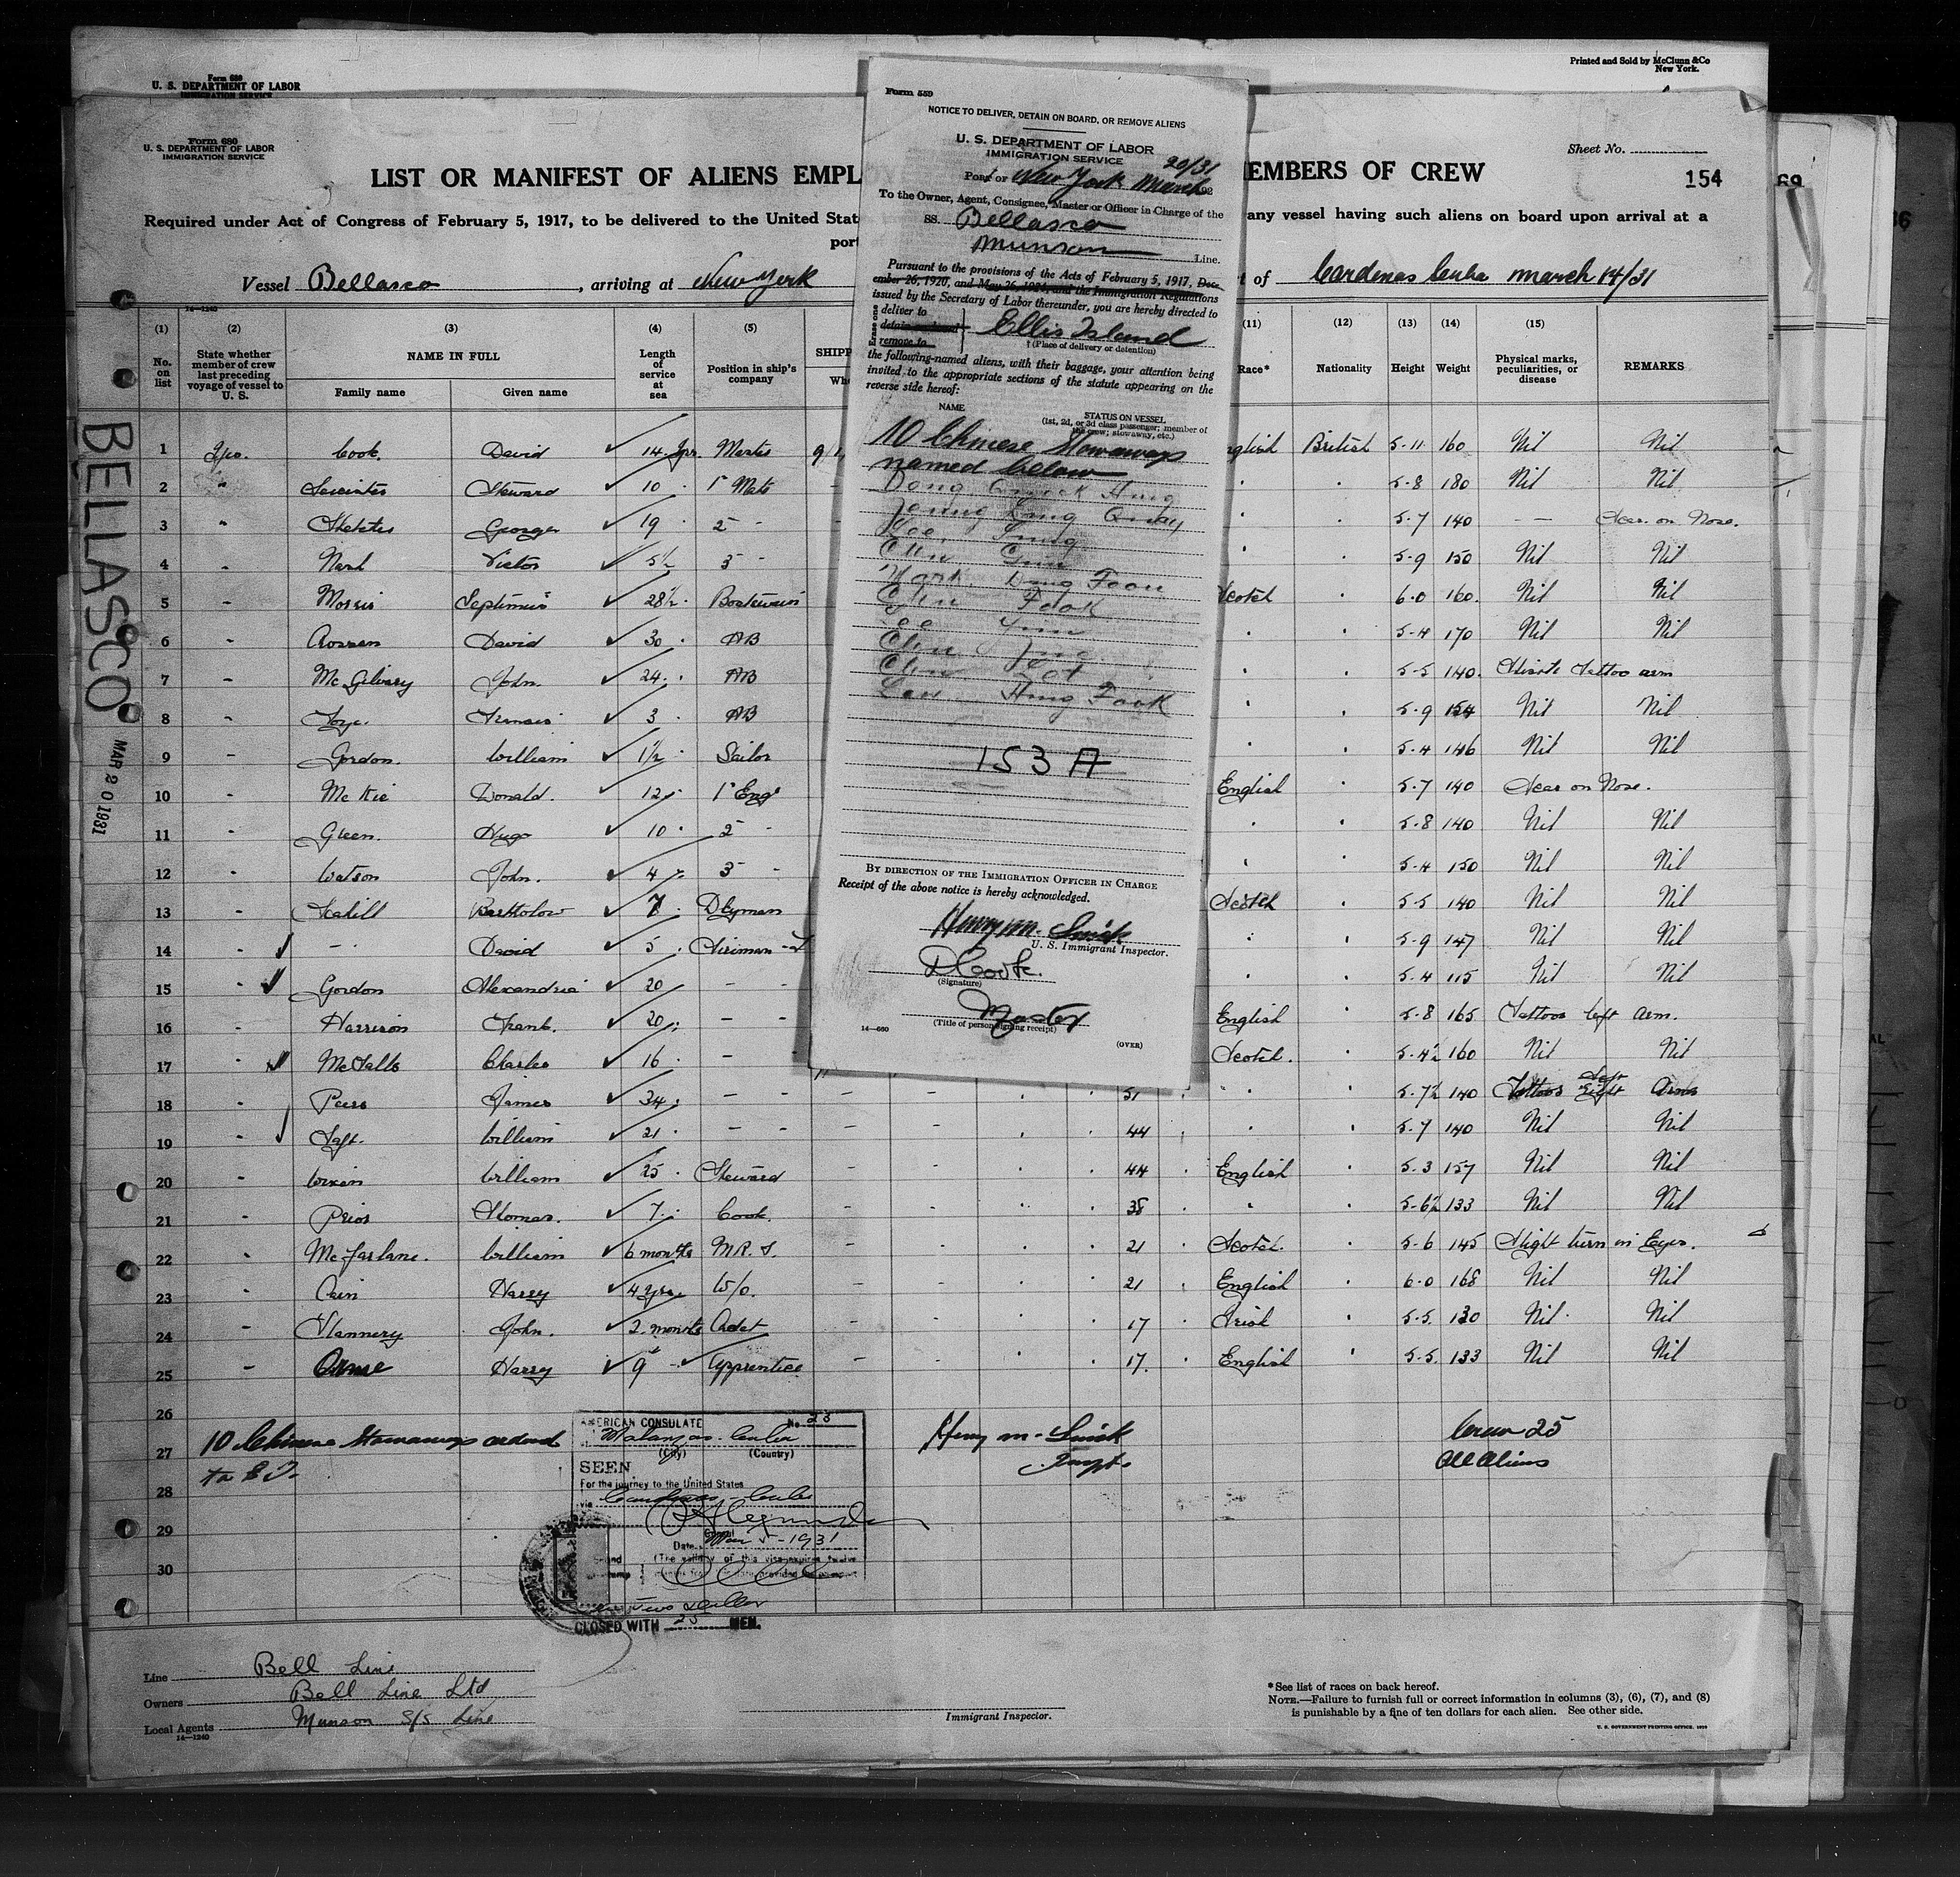 Printed and Sold by McClunn &Co
New York.
Form 680
U. S. DEPARTMENT OF LABOR
IMMIGRATION SERVICE
Form 680
U. S. DEPARTMENT OF LABOR
IMMIGRATION SERVICE
Sheet No.
LIST OR MANIFEST OF ALIENS EMPL
EMBERS OF CREW
154
69
Required under Act of Congress of February 5, 1917, to be delivered to the United Stat
any vessel having such aliens on board upon arrival at a
port
Vessel Bellasco , arriving at New York
t of Cardenas Cuba March 14/31
14—1240
(1) (2) (3) (4) (5)
No. on list
State whether member of crew last preceding voyage of vessel to U. S.
NAME IN FULL
Family name Given name
Length of service at sea
Position in ship's company
SHIPP
Whe
(11) (12) (13) (14) (15)
Race* Nationality Height Weight
Physical marks, peculiarities, or disease
REMARKS
BELLASCO
MAR 20 1931
1 Cook. David 14 yrs. Master English British 5-11 160 Nil Nil
2 " Steward 10 1st Mate 5-8 180 Nil Nil
3 " George 19 2 - 5-7 140 — — Scar on Nose.
4 - Victor 5½ 3 - 5-9 150 Nil Nil
5 - Morris Septimus 28½ Boatswain Scotch 6-0 160. Nil Nil
6 - David 30 AB 5-4 170 Nil Nil
7 - McGilvary John. 24 AB 5-5 140. Tattoo arm
8 - Francis 3 AB 5-9 154 Nil Nil
9 - Gordon. William 1½ Sailor 5-4 146 Nil Nil
10 - McKie Donald. 12 1st Engr English 5-7 140 Scar on Nose.
11 - Green. Hugo 10 2 - 5-8 140 Nil Nil
12 - Watson John. 4 3 - 5-4 150 Nil Nil
13 - Cahill Bartholow 7 Dkyman Scotch 5-5 140 Nil Nil
14 - — David 5 Fireman 5-9 147 Nil Nil
15 - Gordon Alexandria 20 - - 5-4 115 Nil Nil
16 - Harrison Frank. 20 - - English 5-8 165 Tattoos left arm.
17 - McFalls Charles 16 - - Scotch. 5-4½ 160 Nil Nil
18 - Peers James 34 - - 51 5-7½ 140 Tattoos left right Arms
19 - Taft. William 21 - - 44 5-7 140 Nil Nil
20 - William 25 Steward 44 English 5-3 157 Nil Nil
21 - Prior Thomas. 7 Cook. 38 5-6½ 133 Nil Nil
22 - McFarlane. William 6 months M.R.S. 21 Scotch. 5-6 145 Slight turn in Eyes.
23 - Cain Harry 4 yrs. W/o. 21 English 6-0 168 Nil Nil
24 - Flannery John. 2 months Cadet 17 Irish 5-5. 130 Nil Nil
25 - Orme Harry 9 Apprentice 17. English 5-5. 133 Nil Nil
26
27
28
29
30
10 Chinese Stowaways ordered
to E I.
Henry M. Smick
Inspt.
Crew 25
All Aliens
AMERICAN CONSULATE No. 23
Matanzas. Cuba
(City) (Country)
SEEN
For the journey to the United States
via Cardenas - Cuba
Consul
Date Mar 5-1931
(The validity of this visa expires twelve
Two Dollar
CLOSED WITH 25 MEN.
Form 559
NOTICE TO DELIVER, DETAIN ON BOARD, OR REMOVE ALIENS
U. S. DEPARTMENT OF LABOR
IMMIGRATION SERVICE
Port of New York March 20/31 192
To the Owner, Agent, Consignee, Master or Officer in Charge of the
SS. Bellasco
Munson Line.
Pursuant to the provisions of the Acts of February 5, 1917, Dec-
ember 26, 1920, and May 26, 1924, and the Immigration Regulations
issued by the Secretary of Labor thereunder, you are hereby directed to
Erase one
deliver to
detain on board
remove to
Ellis Island
† (Place of delivery or detention)
the following-named aliens, with their baggage, your attention being
invited to the appropriate sections of the statute appearing on the
reverse side hereof:
NAME
STATUS ON VESSEL
(1st, 2d, or 3d class passenger; member of
the crew; stowaway, etc.)
10 Chinese Stowaways
named below
Hing
Quay
Chin
Mark Foon
Chin Fook
Chin
Chin
Hing Fook
153 A
BY DIRECTION OF THE IMMIGRATION OFFICER IN CHARGE
Receipt of the above notice is hereby acknowledged.
Henry M. Smick
U. S. Immigrant Inspector.
D Cook.
(Signature)
Master
(Title of person signing receipt)
14—660
(OVER)
Line Bell Line
Owners Bell Line Ltd
Local Agents Munson S/S Line
14—1240
Immigrant Inspector.
*See list of races on back hereof.
NOTE.—Failure to furnish full or correct information in columns (3), (6), (7), and (8)
is punishable by a fine of ten dollars for each alien. See other side.
U. S. GOVERNMENT PRINTING OFFICE. 1929